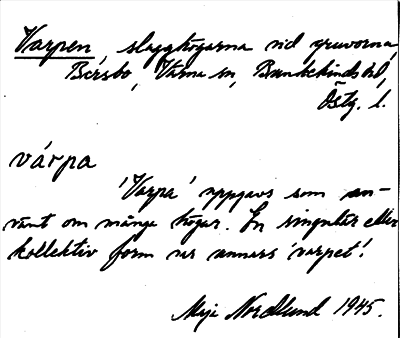 Varpen, slagghögarna vid gruvorna,
Bersbo, Värna sn, Bankekinds hd,
Östg. l.
várpa
'Varpa' uppgavs som an-
vänt om många högar. En singular eller
kollektiv form var annars 'varpet'.
Maja Nordlund 1945.